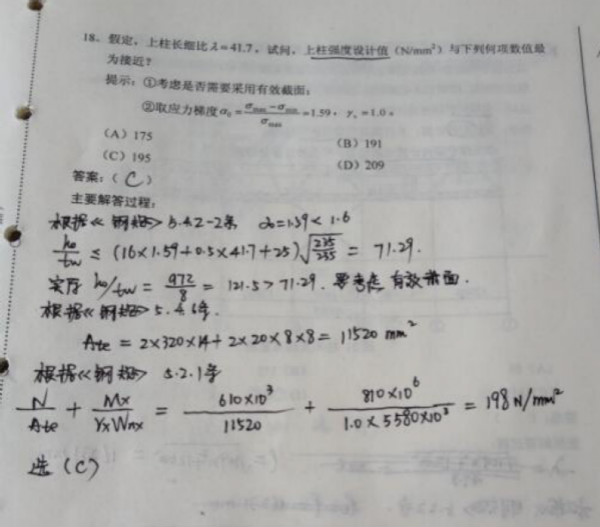 18. 假定，上柱长细比λ=41.7。试问，上柱强度设计值（N/mm²）与下列何项数值最
为接近？
提示：①考虑是否需要采用有效截面；
②取应力梯度α₀=(σmax−σmin)/σmax=1.59，γx=1.0。
（A）175
（B）191
（C）195
（D）209
答案：（C）
主要解答过程：
根据《钢规》5.4.2-2条 α₀=1.59<1.6
h₀/tw ≤ (16×1.59+0.5×41.7+25)√(235/235) = 71.29.
实际 h₀/tw = 972/8 = 121.5>71.29. 要考虑 有效截面.
根据《钢规》5.4.6条.
Ate = 2×320×14+2×20×8×8= 11520 mm²
根据《钢规》5.2.1条
N/Ate + Mx/γxWnx = 610×10³/11520 + 810×10⁶/1.0×5580×10³ = 198N/mm²
选（C）